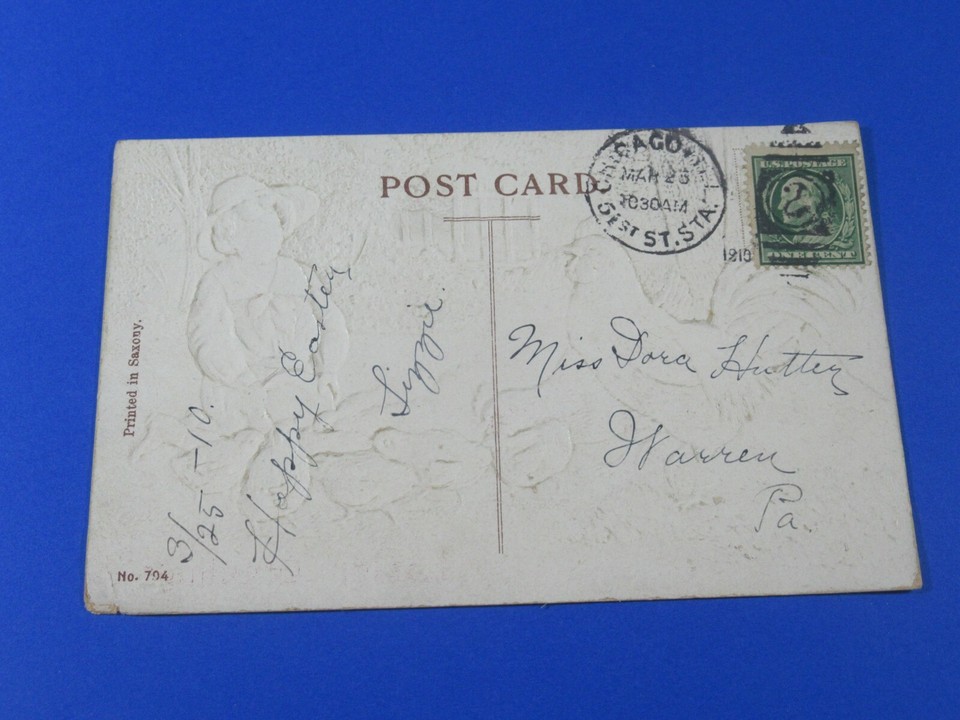 POST CARD
CHICAGO, ILL.
MAR 25
1030AM
51ST ST. STA.
1910
U.S. POSTAGE
Printed in Saxony.
3/25-10.
Happy Easter,
Lizzie.
Miss Dora Hutter
Warren
Pa.
No. 794